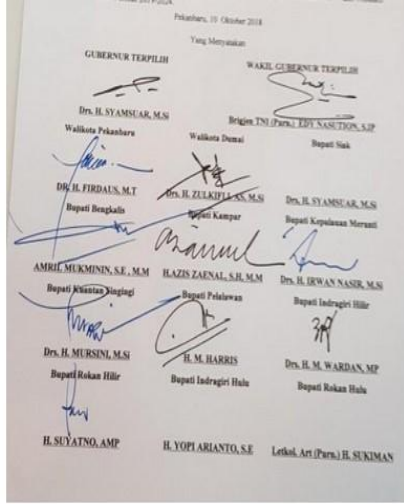 Pekanbaru, 10 Oktober 2018
Yang Menyatakan
GUBERNUR TERPILIH
WAKIL GUBERNUR TERPILIH
Drs. H. SYAMSUAR, M.Si
Brigjen TNI (Purn.) EDY NASUTION, S.IP
Walikota Pekanbaru
Walikota Dumai
Bupati Siak
DR. H. FIRDAUS, M.T
Drs. H. ZULKIFLI AS, M.Si
Drs. H. SYAMSUAR, M.Si
Bupati Bengkalis
Bupati Kampar
Bupati Kepulauan Meranti
AMRIL MUKMININ, S.E , M.M
H.AZIS ZAENAL, S.H, M.M
Drs. H. IRWAN NASIR, M.Si
Bupati Kuantan Singingi
Bupati Pelalawan
Bupati Indragiri Hilir
Drs. H. MURSINI, M.Si
H. M. HARRIS
Drs. H. M. WARDAN, MP
Bupati Rokan Hilir
Bupati Indragiri Hulu
Bupati Rokan Hulu
H. SUYATNO, AMP
H. YOPI ARIANTO, S.E
Letkol. Art (Purn.) H. SUKIMAN